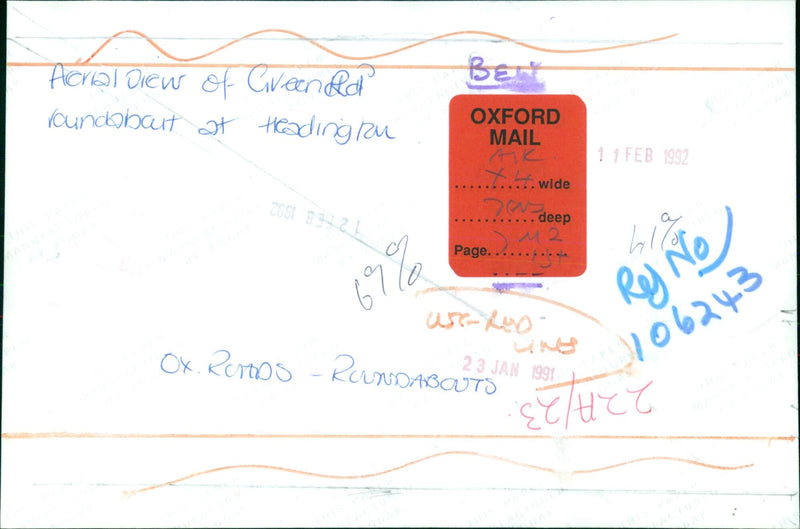 Aerial view of Green Rd
roundabout at Headington
BEN
OXFORD
MAIL
X4
...........wide
...........deep
Page...........
11 FEB 1992
12 FEB 1992
69%
41%
Ref No/
106243
USE RED
LINES
23 JAN 1991
OX. ROADS - ROUNDABOUTS
22A/23